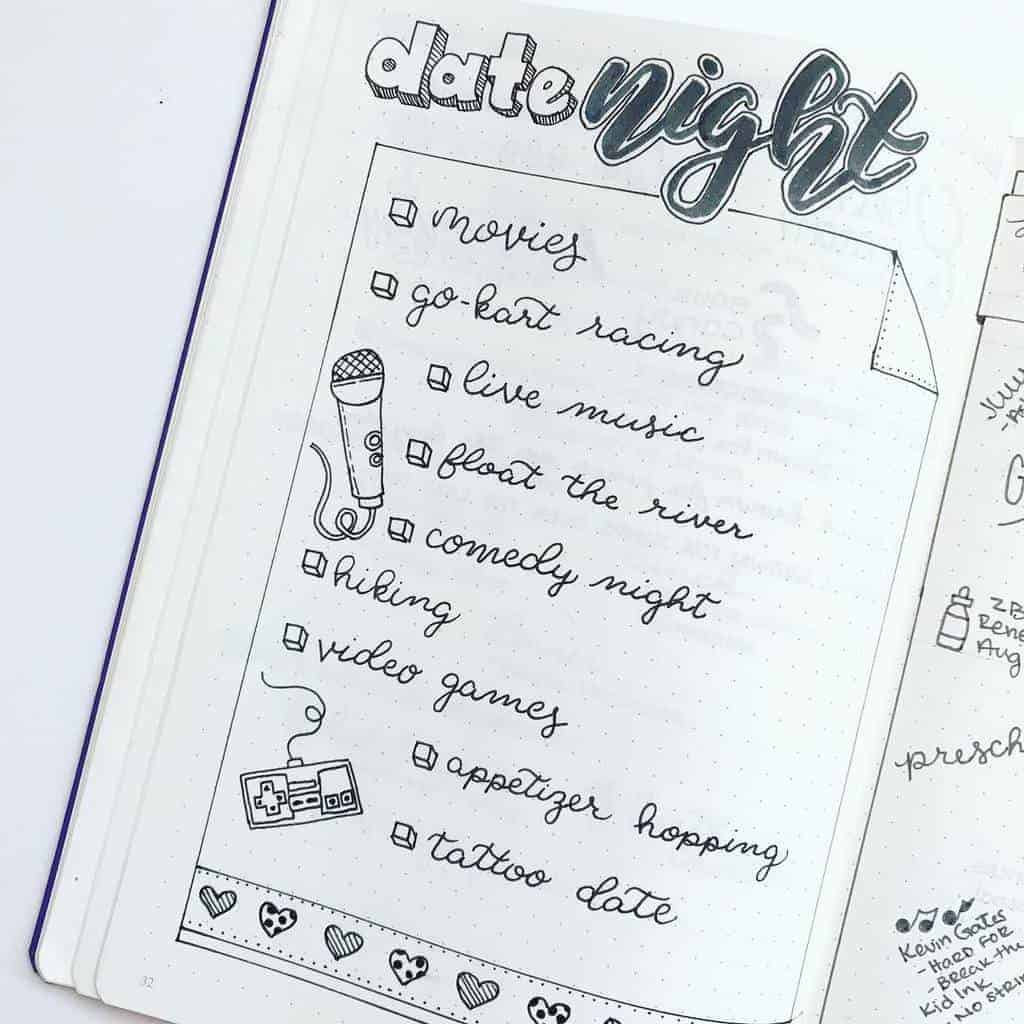 date night
movies
go-kart racing
live music
float the river
comedy night
hiking
video games
appetizer hopping
tattoo date
32
G
Aug
presch
Kevin Gates
- HARD FOR
- Break the
Kid Ink
- NO STRIN